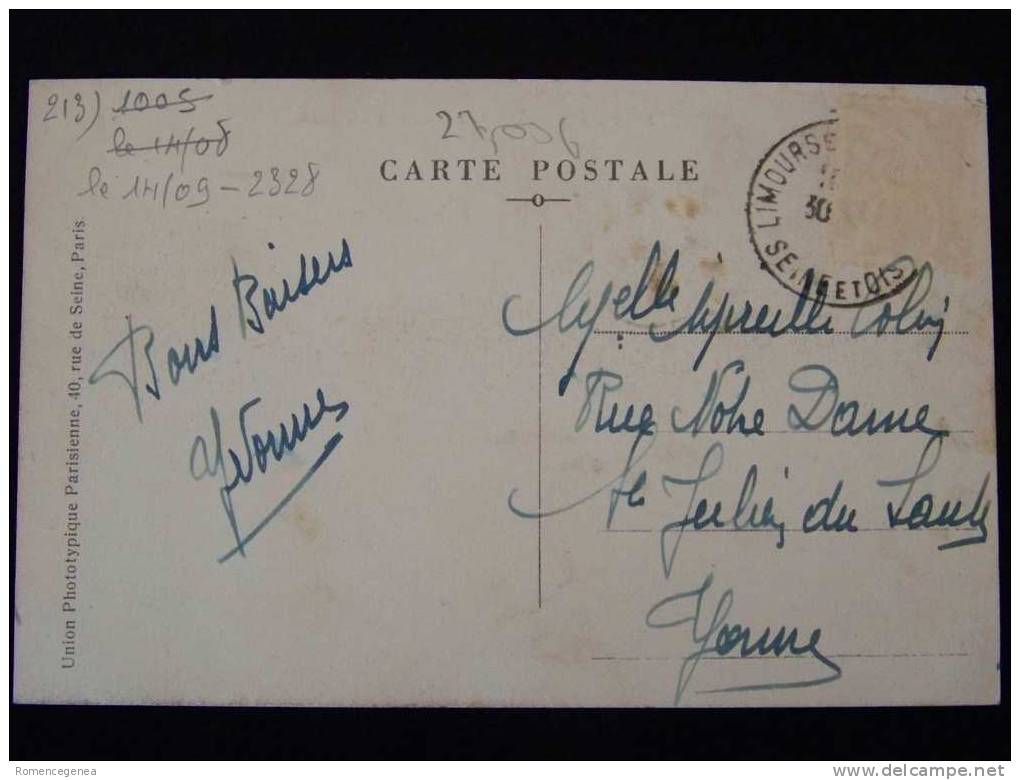 213) 1005
le 14/08
le 14/09 - 2328
27,006
CARTE POSTALE
LIMOURS SEINE ET OISE
30
Union Phototypique Parisienne, 40, rue de Seine, Paris
Bons Baisers
Yvonne
Melle Mireille
Rue Notre Dame
St Julien du Sault
Yonne
Romencegenea
www.delcampe.net